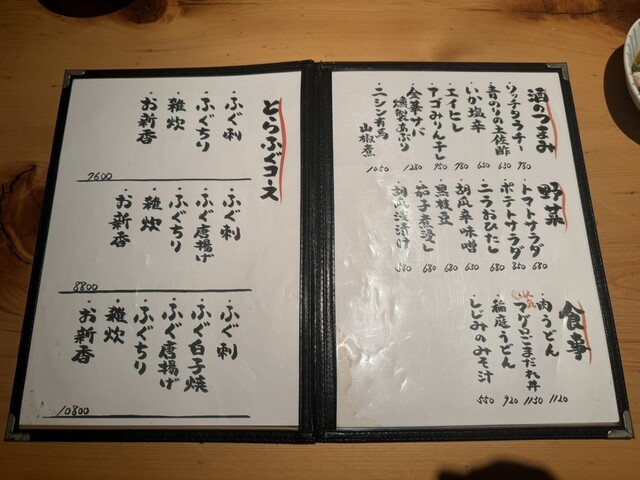 酒のつまみ
・リッチタラチー 780
・青のりの土佐酢 630
・いか塩辛 630
・エイヒレ 780
・アゴみりん干し 950
・金華サバ
燻製あぶり 1280
・ニシン有馬
山椒煮 1050
野菜
・トマトサラダ 680
・ポテトサラダ 850
・ニラおひたし 680
・胡瓜辛味噌 630
・黒枝豆 680
・茄子煮浸し 680
・胡瓜浅漬け 580
食事
・肉うどん 1120
・マグロごまだれ丼 1150
・稲庭うどん 920
・しじみのみそ汁 550
とらふぐコース
・ふぐ刺
・ふぐちり
・雑炊
・お新香
7600
・ふぐ刺
・ふぐ唐揚げ
・ふぐちり
・雑炊
・お新香
8800
・ふぐ刺
・ふぐ白子焼
・ふぐ唐揚げ
・ふぐちり
・雑炊
・お新香
10800